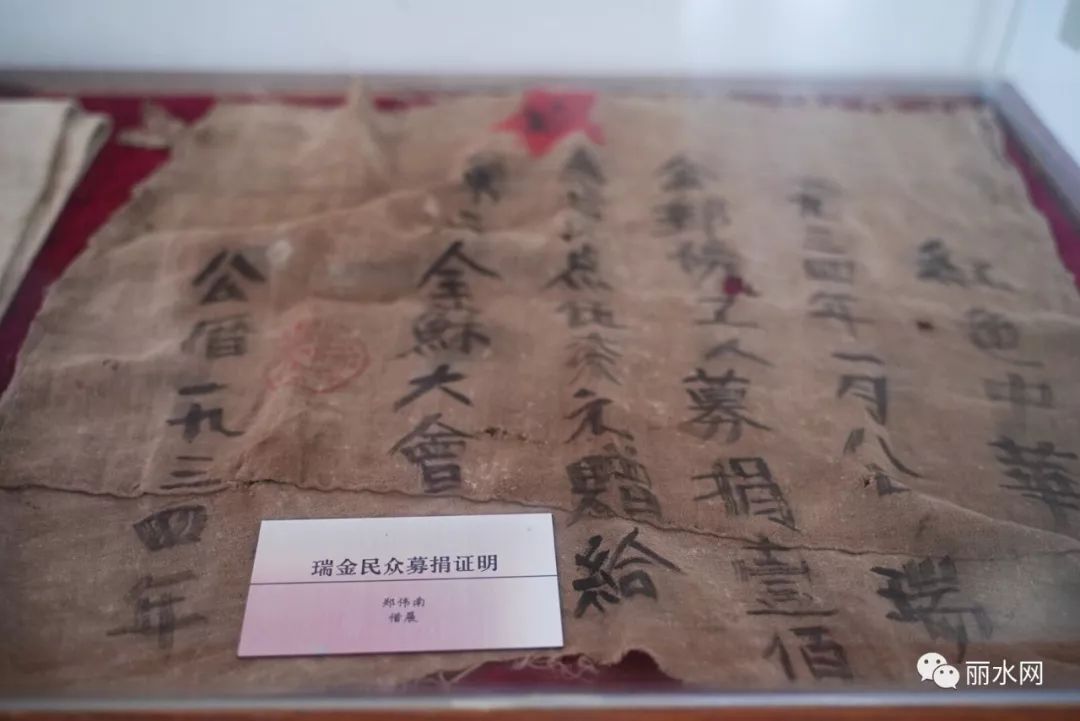 紅色中華
一九三四年一月八日瑞
金郵務工人募捐壹佰
元贈給
第二全蘇大會
公曆一九三四年
瑞金民众募捐证明
郑伟南
借展
丽水网